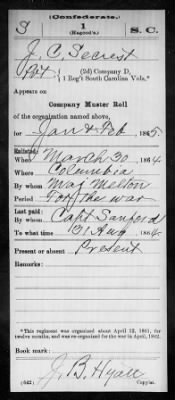 (Confederate.)
S 1 S. C.
(Hagood's.)
J. C. Secrest
Pvt, (2d) Company D,
1 Reg't South Carolina Vols.*
Appears on
Company Muster Roll
of the organization named above,
for Jan & Feb, 1865.
Enlisted:
When March 30, 1864.
Where Columbia
By whom Maj Melton
Period For the war
Last paid:
By whom Capt Sanford
To what time 31 Aug, 1864.
Present or absent Present
Remarks:
*This regiment was organized about April 12, 1861, for
twelve months, and was re-organized for the war in 1862.
Book mark:
J. B. Hyatt
(642) Copyist.